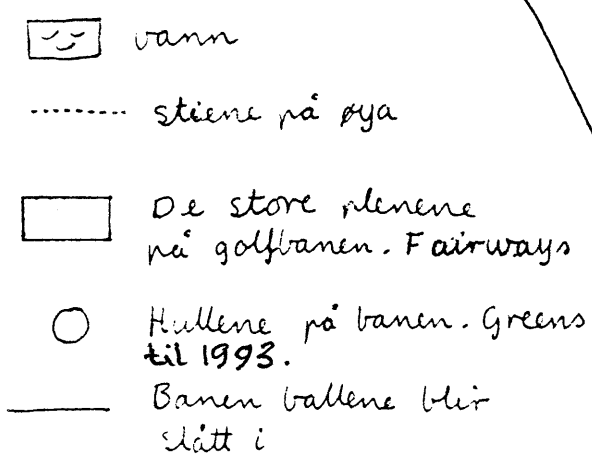 vann
stiene på øya
De store plenene
på golfbanen. Fairways
Hullene på banen. Greens
til 1993.
Banen ballene blir
slått i